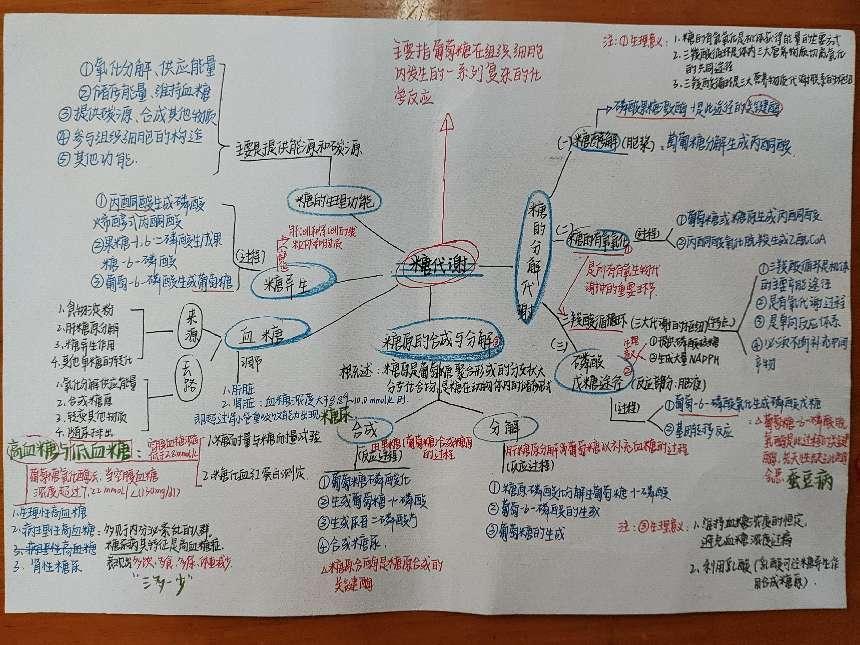 主要指葡萄糖在组织细胞
内发生的一系列复杂的化
学反应
注:①生理意义:
1.糖的有氧氧化是机体获得能量的主要方式
2.三羧酸循环是体内三大营养物质彻底氧化
的共同途径
3.三羧酸循环是三大营养物质代谢联系的枢纽
①氧化分解、供应能量
②储存能量、维持血糖
③提供碳源、合成其他物质
④参与组织细胞的构造
⑤其他功能.
主要是提供能源和碳源
糖的生理功能
①丙酮酸生成磷酸
烯醇式丙酮酸
②果糖-1.6-二磷酸生成果
糖-6-磷酸
③葡萄-6-磷酸生成葡萄糖
(过程)
糖异生
糖代谢
糖的分解代谢
(一)糖酵解(胞浆):葡萄糖分解生成丙酮酸
(二)糖的有氧氧化
(过程)
①葡萄糖或糖原生成丙酮酸
②丙酮酸氧化脱羧生成乙酰CoA
三羧酸循环
①三羧酸循环是机体
的主要产能途径
②是有氧代谢过程
③是单向反应体系
④必须不断补充中间
产物
(三)磷酸
戊糖途径
②生成大量NADPH
(过程)
①葡萄-6-磷酸氧化生成磷酸戊糖
②基团转移反应
蚕豆病
来源
1.食物淀粉
2.肝糖原分解
3.糖异生作用
4.其他单糖的转化
血糖
去路
1.氧化分解供应能量
2.合成糖原
3.转变其他物质
4.随尿排出
调节
1.肝脏
2.肾脏:血糖浓度大于8.89~10.0mmol/L时
糖尿
糖原的合成与分解
概述:糖原是葡萄糖聚合形式的分支状大
分子化合物,是糖在动物体内的储存形式
合成
(反应过程)
①葡萄糖磷酸化
②生成葡萄糖-1-磷酸
③生成尿苷二磷酸
④合成糖原.
糖原合酶是糖原合成的
关键酶
分解
肝糖原分解为葡萄糖以补充血糖的过程
(反应过程)
①糖原磷酸化分解生葡萄糖-1-磷酸
②葡萄-6-磷酸的生成
③葡萄糖的生成
高血糖与低血糖:
葡萄糖氧化酶法:当空腹血糖
浓度超过7.22mmol/L(130mg/dl)
1.糖耐量与糖耐量试验
2.糖化血红蛋白测定
1.生理性高血糖
2.病理性高血糖:多见内分泌紊乱的人群
3.病理性高血糖
糖尿病其特征是高血糖症.
3.肾性糖尿
表现出多饮、多食、多尿、体重减少.
"三多一少"
注:③生理意义:
1.维持血糖浓度的恒定,
避免血糖浓度过高
2.利用乳酸(乳酸可经糖异生作
用合成糖原).